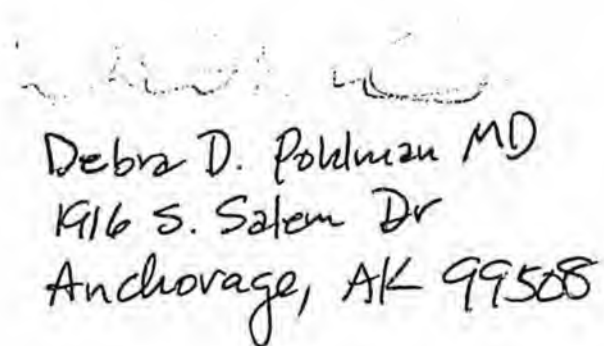 Debra D. Pohlman MD
1916 S. Salem Dr
Anchorage, AK 99508